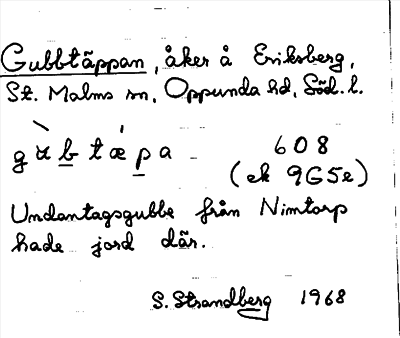 Gubbtäppan, åker å Eriksberg,
St. Malms sn, Oppunda hd, Söd. l.
gʉ̀b tǽpa 608
(ek 9G5e)
Undantagsgubbe från Nimtorp
hade jord där.
S. Strandberg 1968